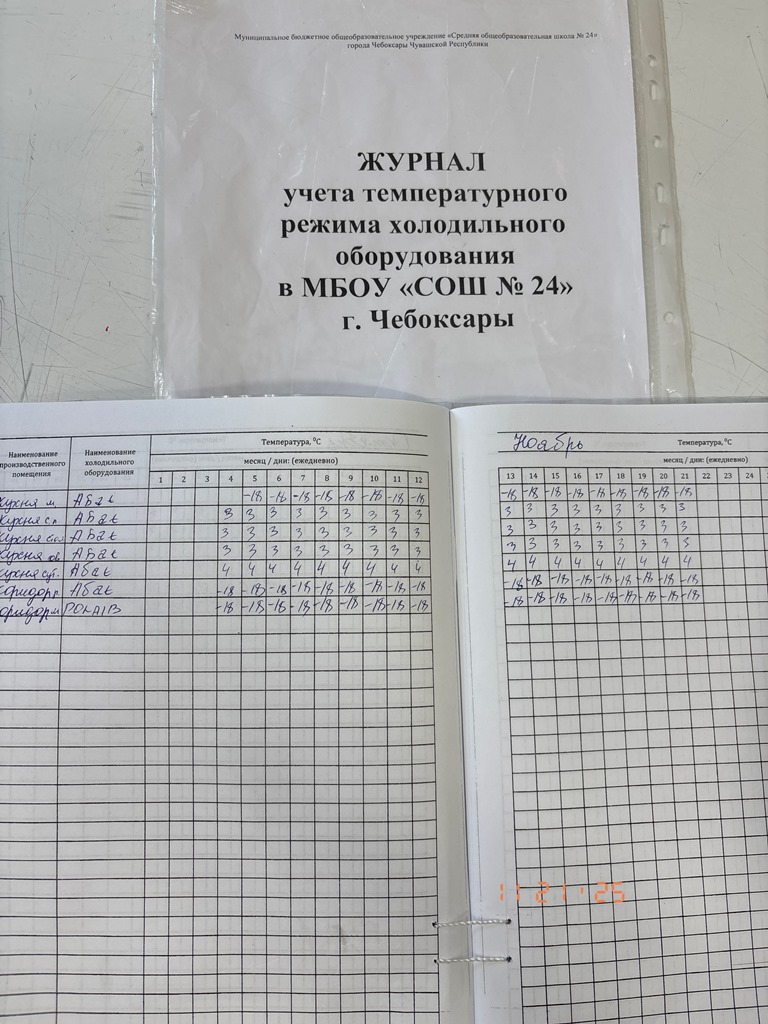 Муниципальное бюджетное общеобразовательное учреждение «Средняя общеобразовательная школа № 24»
города Чебоксары Чувашской Республики
ЖУРНАЛ
учета температурного
режима холодильного
оборудования
в МБОУ «СОШ № 24»
г. Чебоксары
Наименование производственного помещения
Наименование холодильного оборудования
Температура, °С
месяц / дни: (ежедневно)
1 2 3 4 5 6 7 8 9 10 11 12
Ноябрь Температура, °С
месяц / дни: (ежедневно)
13 14 15 16 17 18 19 20 21 22 23 24
Кухня м Абат -18 -18 -18 -18 -18 -18 -18 -18 -18 -18 -18 -18 -18 -18 -18 -18 -18
Кухня Абат 3 3 3 3 3 3 3 3 3 3 3 3 3 3 3 3 3 3
Кухня Абат 3 3 3 3 3 3 3 3 3 3 3 3 3 3 3 3 3 3
Кухня Абат 3 3 3 3 3 3 3 3 3 3 3 3 3 3 3 3 3 3
Кухня Абат 4 4 4 4 4 4 4 4 4 4 4 4 4 4 4 4 4 4
Абат -18 -18 -18 -18 -18 -18 -18 -18 -18 -18 -18 -18 -18 -18 -18 -18 -18 -18
POLAIR -18 -18 -18 -18 -18 -18 -18 -18 -18 -18 -18 -18 -18 -18 -18 -18 -18 -18
11 21 '25